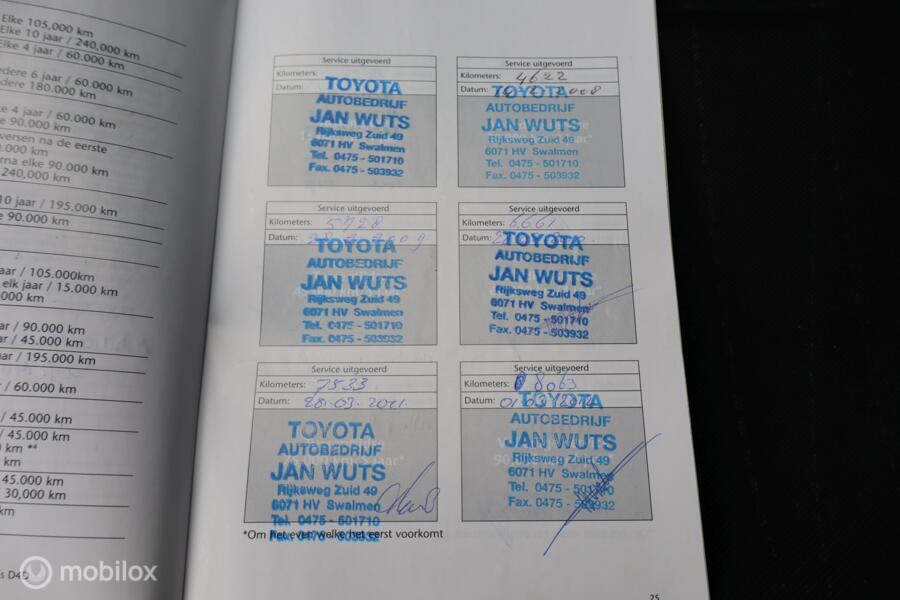 Elke 105,000 km
Elke 10 jaar / 240,000 km
Elke 4 jaar / 60.000 km
edere 6 jaar / 60.000 km
dere 180.000 km
ke 4 jaar / 60.000 km
e 90.000 km
versen na de eerste
0.000 km
rna elke 90.000 km
240,000 km
10 jaar / 195.000 km
e 90.000 km
aar / 105.000km
elk jaar / 15.000 km
000 km
ar / 90.000 km
ar / 45.000 km
aar / 195.000 km
/ 60.000 km
/ 45.000 km
/ 45.000 km
km *4
km
45.000 km
/ 30,000 km
km
s D4D
Service uitgevoerd
Kilometers:
Datum:
TOYOTA
AUTOBEDRIJF
JAN WUTS
Rijksweg Zuid 49
6071 HV Swalmen
Tel. 0475 - 501710
Fax. 0475 - 503932
Service uitgevoerd
Kilometers: 4622
Datum: 2008
TOYOTA
AUTOBEDRIJF
JAN WUTS
Rijksweg Zuid 49
6071 HV Swalmen
Tel. 0475 - 501710
Fax. 0475 - 503932
Service uitgevoerd
Kilometers: 5728
Datum: 2009
TOYOTA
AUTOBEDRIJF
JAN WUTS
Rijksweg Zuid 49
6071 HV Swalmen
Tel. 0475 - 501710
Fax. 0475 - 503932
Service uitgevoerd
Kilometers: 6661
Datum:
TOYOTA
AUTOBEDRIJF
JAN WUTS
Rijksweg Zuid 49
6071 HV Swalmen
Tel. 0475 - 501710
Fax. 0475 - 503932
Service uitgevoerd
Kilometers: 7533
Datum: 28.03.2011.
TOYOTA
AUTOBEDRIJF
JAN WUTS
Rijksweg Zuid 49
6071 HV Swalmen
Tel. 0475 - 501710
Fax. 0475 - 503932
Service uitgevoerd
Kilometers: 8063
Datum: 01-03-2012
TOYOTA
AUTOBEDRIJF
JAN WUTS
Rijksweg Zuid 49
6071 HV Swalmen
Tel. 0475 - 501710
Fax. 0475 - 503932
*Om het even welke het eerst voorkomt
25
mobilox